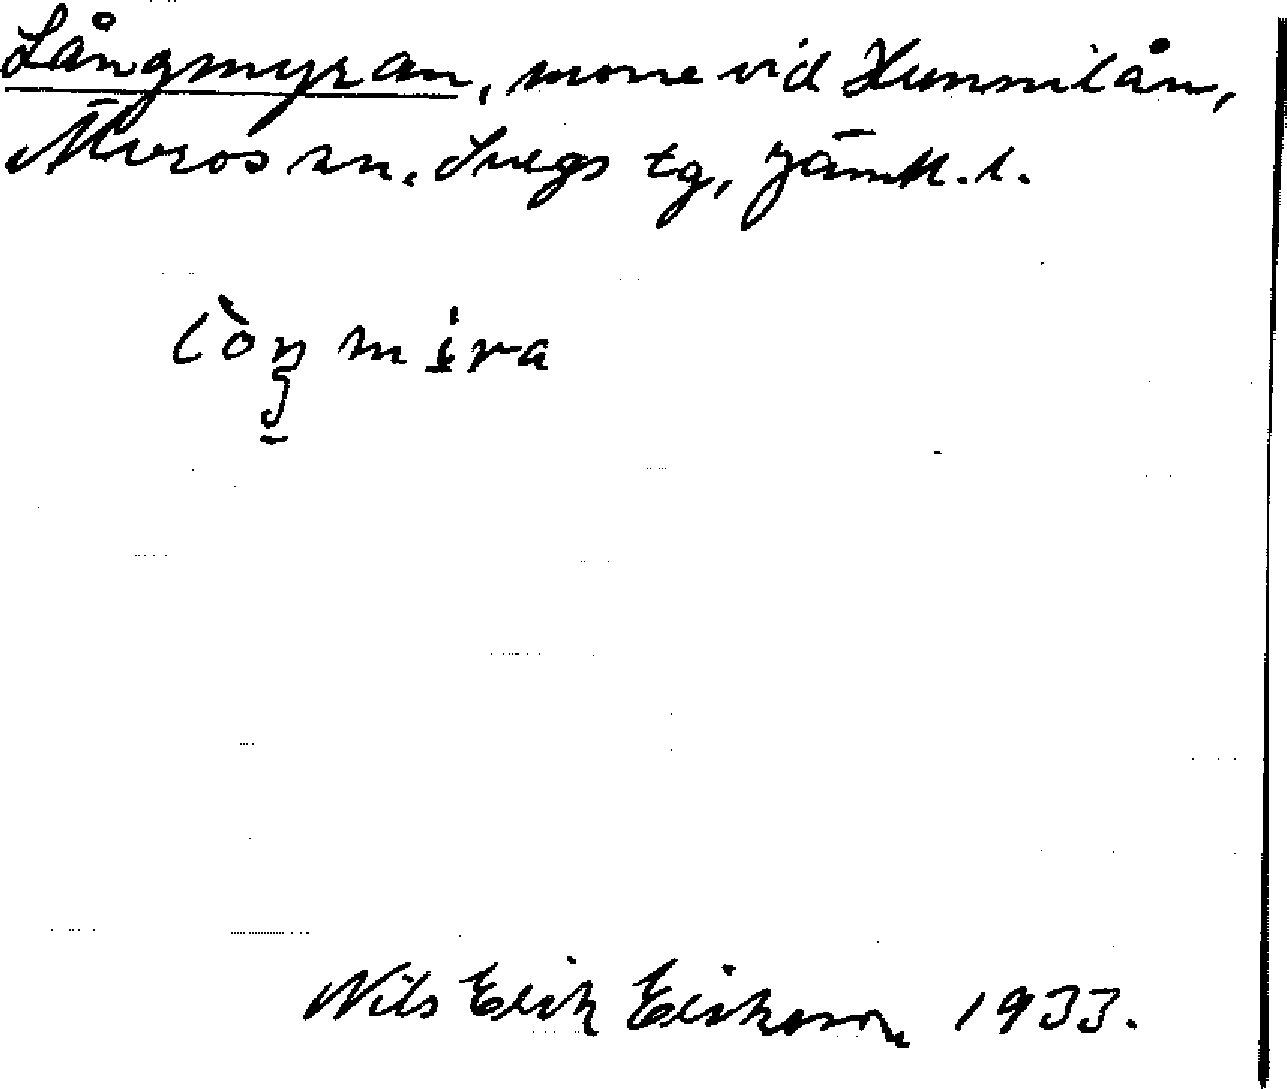 Långmyran, morre vid Hunnilån,
Älvros sn. Svegs tg, Jämtl. l.
lòŋmi̠ra
Nils Erik Eriksson 1933.